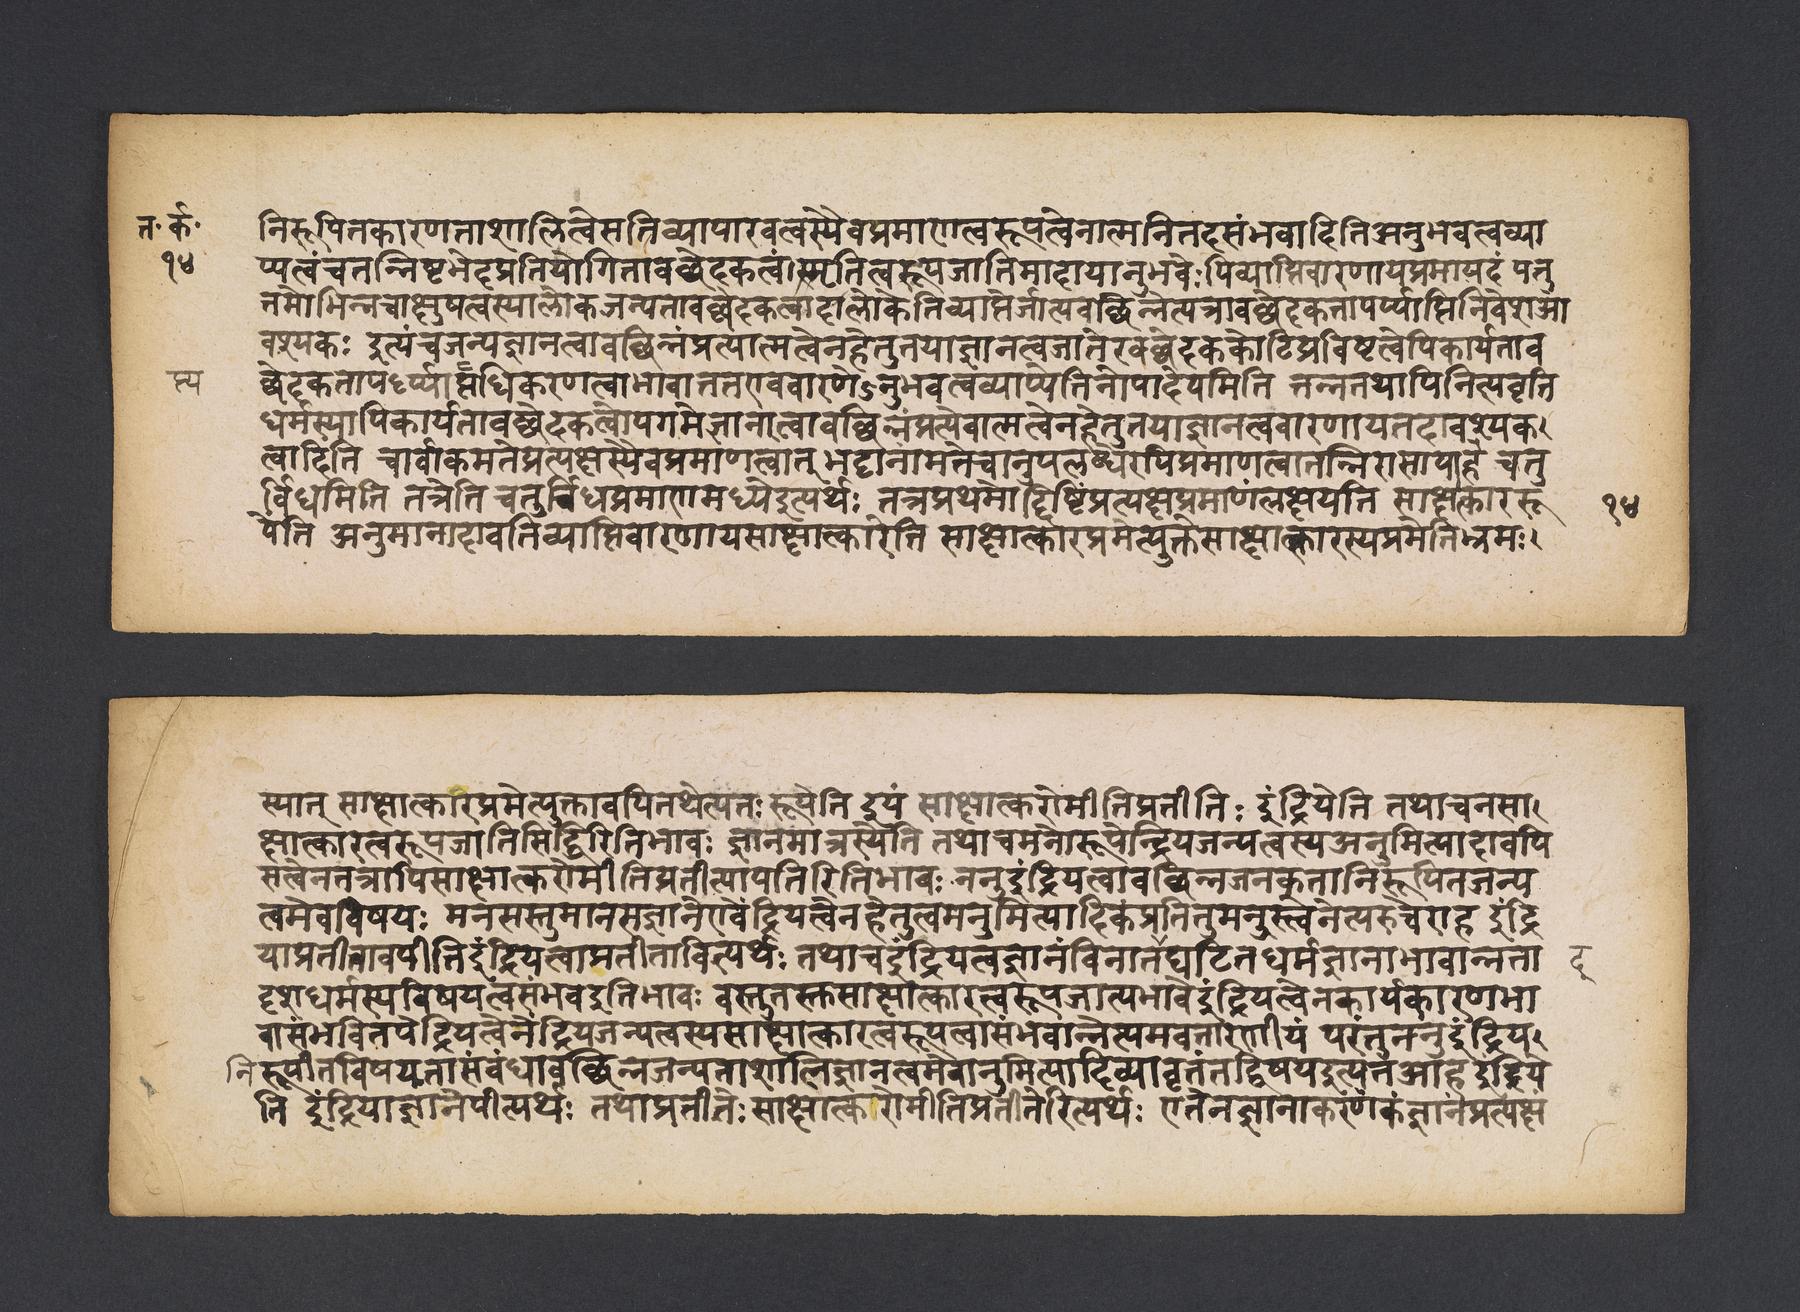 त॰ र्क॰
१४
निरूपितकारणताशालित्वेसतिव्यापारवत्वस्यैवप्रमाणत्वरूपत्वेनात्मनितदसंभवादितिअनुभवत्वव्या
प्यत्वंचतन्निष्टभेदप्रतियोगितावच्छेदकत्वं।स्मृतित्वरूपजातिमादायानुभवे:पिव्याप्तिवारणायप्रमापदं पतु
तमोभिन्नचाक्षुषत्वस्यालोकजन्यतावच्छेदकत्वादालोकेतिव्याप्तेर्जात्यवच्छिन्नेत्यत्रावच्छेदकतापर्य्याप्तिनिवेशआ
वश्यकः इत्यंचजन्यज्ञानत्वावच्छिन्नंप्रत्यात्मत्वेनहेतुतयाज्ञानत्वजातेरवच्छेदककोटिप्रविष्टत्वेपिकार्यताव
प्त्य
च्छेदकतापर्य्याप्त्यधिकरणत्वाभावात्ततएववारणेऽनुभवत्वव्याप्येतिनोपादेयमिति तन्नतथापिनित्यवृत्ति
धर्मस्यापिकार्यतावच्छेदकत्वोपगमेज्ञानात्वावच्छिन्नंप्रत्येवात्मत्वेनहेतुतयाज्ञानत्ववारणायतदावश्यक।
त्वादिति चार्वाकमतेप्रत्यक्षस्यैवप्रमाणत्वात् भट्टानांमतेचानुपलब्धेरपिप्रमाणत्वात्तन्निरासायाह चतु
र्विधमिति तत्रेति चतुर्विधप्रमाणमध्येइत्यर्थः तत्रप्रथमोद्दिष्टिंप्रत्यक्षप्रमाणंलक्षयति साक्षात्काररू
१४
पेति अनुमानादावतिव्याप्तिवारणायसाक्षात्कारेति साक्षात्कारप्रमेत्युक्तेसाक्षात्कारस्यप्रमेतिभ्रमः।
स्यात् साक्षात्कारिप्रमेत्युक्तावपितथेत्यतः रूपेति इयं साक्षात्करोमीतिप्रतीतिः इंद्रियेति तथाचनसा।
क्षात्कारत्वरूपजातिसिद्धिरितिभावः ज्ञानमात्रस्येति तथाचमनोरूपेन्द्रियजन्यत्वस्यअनुमित्यादावपि
सत्वेनतत्रापिसाक्षात्करोमीतिप्रतीत्यापतिरितिभावः ननुइंद्रियत्वावच्छिन्नजनकतानिरूपितजन्य
त्वमेवविषयः मनसस्तुमानसज्ञानेएवेंद्रियत्वेनहेतुत्वमनुमित्यादिकंप्रतितुमनुस्त्वनेत्यरुचेराह इंद्रि
याप्रतीतावपीतिइंद्रियत्वाप्रतीतावित्यर्थः तथाचइंद्रियत्वज्ञानंविनातर्घटितधर्मज्ञानाभावान्नता
द्
दृशधर्मस्यविषयत्वसंभवइतिभावः वस्तुतस्तसाक्षात्कारत्वरूपजात्यभावेइंद्रियत्वेनकार्यकारणभा
वासंभवितपेंद्रियत्वेनेंद्रियजन्यत्वस्यसाक्षात्कारत्वरूपत्वासंभवान्नेत्थमवतारणीयं परंतुननुइंद्रिय।
निरूपीतविषयतासंबंधावच्छिन्नजन्यताशालिज्ञानत्वमेवानुमित्यादिव्यावृतंतद्विषयइत्यतआह इंद्रिये
ति इंद्रियाज्ञानेपीत्यर्थः तथाप्रतीतेः साक्षात्करोमीतिप्रतीतेरित्यर्थः एतेनज्ञानाकरणकंज्ञानंप्रत्यक्षं